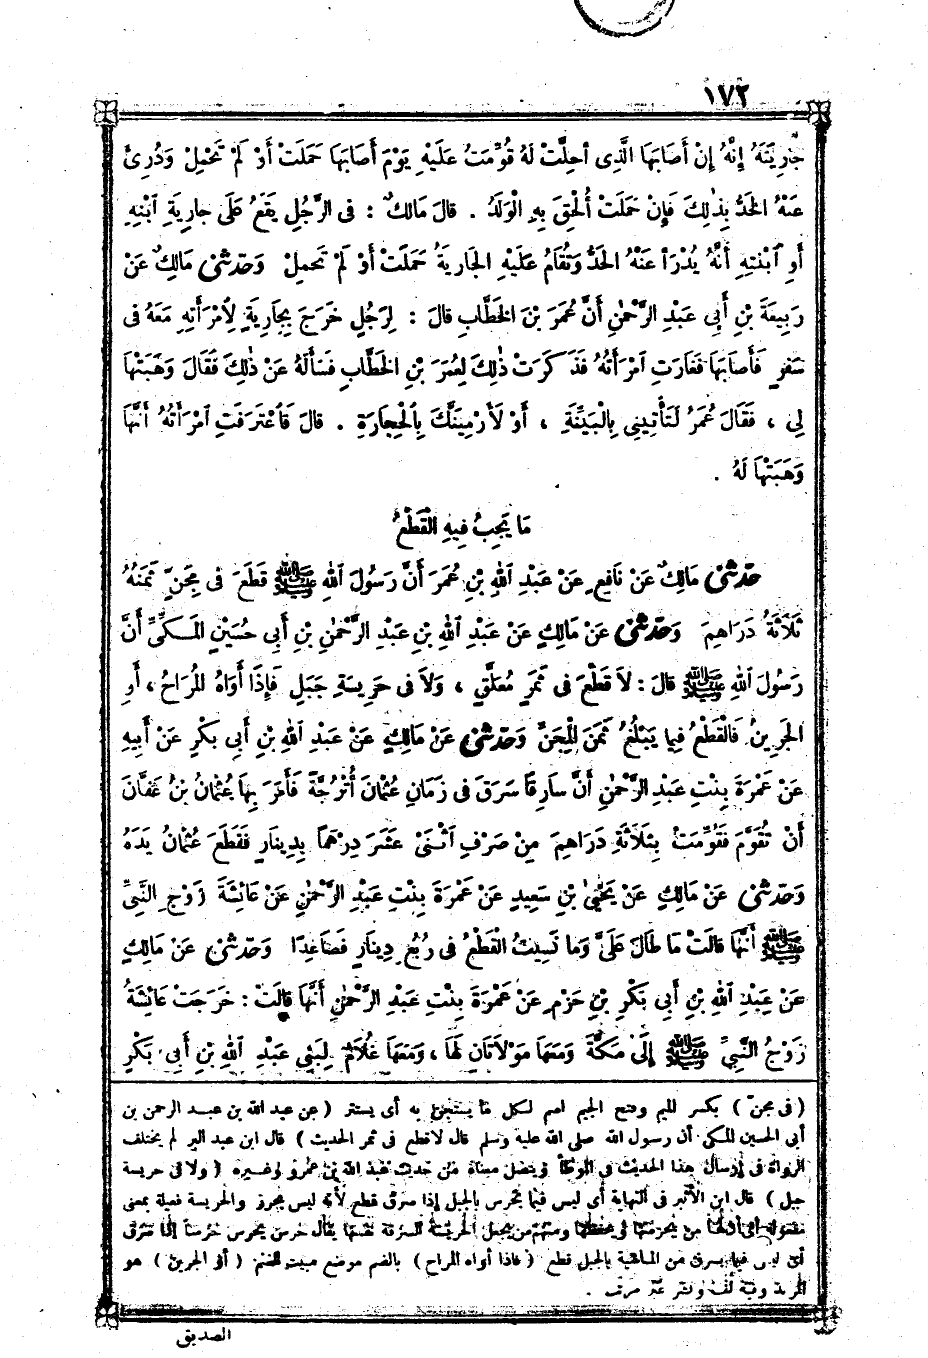 ١٧٢
جَارِيَتَهُ إِنَّهُ إِنْ أَصَابَهَا الَّذِى أُحِلَّتْ لَهُ قُوِّمَتْ عَلَيْهِ يَوْمَ أَصَابَهَا حَمَلَتْ أَوْ لَمْ تَحْمِلْ وَدُرِئَ
عَنْهُ الْحَدُّ بِذٰلِكَ فَإِنْ حَمَلَتْ أُلْحِقَ بِهِ الْوَلَدُ . قَالَ مَالِكٌ : فِى الرَّجُلِ يَقَعُ عَلَى جَارِيَةِ ابْنِهِ
أَوِ ابْنَتِهِ أَنَّهُ يُدْرَأُ عَنْهُ الْحَدُّ وَتُقَامُ عَلَيْهِ الْجَارِيَةُ حَمَلَتْ أَوْ لَمْ تَحْمِلْ وَحَدَّثَنِى مَالِكٌ عَنْ
رَبِيعَةَ بْنِ أَبِى عَبْدِ الرَّحْمٰنِ أَنَّ عُمَرَ بْنَ الْخَطَّابِ قَالَ : لِرَجُلٍ خَرَجَ بِجَارِيَةٍ لِامْرَأَتِهِ مَعَهُ فِى
سَفَرٍ فَأَصَابَهَا فَغَارَتِ امْرَأَتُهُ فَذَكَرَتْ ذٰلِكَ لِعُمَرَ بْنِ الْخَطَّابِ فَسَأَلَهُ عَنْ ذٰلِكَ فَقَالَ وَهَبَتْهَا
لِى ، فَقَالَ عُمَرُ لَتَأْتِينِى بِالْبَيِّنَةِ ، أَوْ لَأَرْمِيَنَّكَ بِالْحِجَارَةِ . قَالَ فَاعْتَرَفَتِ امْرَأَتُهُ أَنَّهَا
وَهَبَتْهَا لَهُ .
مَا يَجِبُ فِيهِ الْقَطْعُ
حَدَّثَنِى مَالِكٌ عَنْ نَافِعٍ عَنْ عَبْدِ اللهِ بْنِ عُمَرَ أَنَّ رَسُولَ اللهِ ﷺ قَطَعَ فِى مِجَنٍّ ثَمَنُهُ
ثَلَاثَةُ دَرَاهِمَ وَحَدَّثَنِى عَنْ مَالِكٍ عَنْ عَبْدِ اللهِ بْنِ عَبْدِ الرَّحْمٰنِ بْنِ أَبِى حُسَيْنٍ الْمَكِّىِّ أَنَّ
رَسُولَ اللهِ ﷺ قَالَ : لَا قَطْعَ فِى ثَمَرٍ مُعَلَّقٍ ، وَلَا فِى حَرِيسَةِ جَبَلٍ فَإِذَا أَوَاهُ الْمُرَاحُ ، أَوِ
الْجَرِينُ فَالْقَطْعُ فِيمَا يَبْلُغُ ثَمَنَ الْمِجَنِّ وَحَدَّثَنِى عَنْ مَالِكٍ عَنْ عَبْدِ اللهِ بْنِ أَبِى بَكْرٍ عَنْ أَبِيهِ
عَنْ عَمْرَةَ بِنْتِ عَبْدِ الرَّحْمٰنِ أَنَّ سَارِقًا سَرَقَ فِى زَمَانِ عُثْمَانَ أُتْرُجَّةً فَأَمَرَ بِهَا عُثْمَانُ بْنُ عَفَّانَ
أَنْ تُقَوَّمَ فَقُوِّمَتْ بِثَلَاثَةِ دَرَاهِمَ مِنْ صَرْفِ اثْنَىْ عَشَرَ دِرْهَمًا بِدِينَارٍ فَقَطَعَ عُثْمَانُ يَدَهُ
وَحَدَّثَنِى عَنْ مَالِكٍ عَنْ يَحْيَى بْنِ سَعِيدٍ عَنْ عَمْرَةَ بِنْتِ عَبْدِ الرَّحْمٰنِ عَنْ عَائِشَةَ زَوْجِ النَّبِىِّ
ﷺ أَنَّهَا قَالَتْ مَا طَالَ عَلَىَّ وَمَا نَسِيتُ الْقَطْعُ فِى رُبُعِ دِينَارٍ فَصَاعِدًا وَحَدَّثَنِى عَنْ مَالِكٍ
عَنْ عَبْدِ اللهِ بْنِ أَبِى بَكْرِ بْنِ حَزْمٍ عَنْ عَمْرَةَ بِنْتِ عَبْدِ الرَّحْمٰنِ أَنَّهَا قَالَتْ : خَرَجَتْ عَائِشَةُ
زَوْجُ النَّبِىِّ ﷺ إِلَى مَكَّةَ وَمَعَهَا مَوْلَاتَانِ لَهَا ، وَمَعَهَا غُلَامٌ لِبَنِى عَبْدِ اللهِ بْنِ أَبِى بَكْرٍ
( فى مجن ) بكسر الميم وفتح الجيم اسم لكل ما يستجن به أى يستتر ( عن عبد الله بن عبد الرحمن بن
أبى الحسين المكى أن رسول الله صلى الله عليه وسلم قال لا قطع فى ثمر الحديث ) قال ابن عبد البر لم يختلف
الرواة فى إرسال هذا الحديث فى الموطأ ويتصل معناه من حديث عبد الله بن عمرو وغيره ( ولا فى حريسة
جبل ) قال ابن الأثير فى النهاية أى ليس فيما يحرس بالجبل إذا سرق قطع لأنه ليس بحرز والحريسة فعيلة بمعنى
مفعولة أى أن لها من يحرسها ويحفظها ومنهم من يجعل الحريسة السرقة نفسها يقال حرس يحرس حرسا إذا سرق
أى ليس فيما يسرق من الماشية بالجبل قطع ( فاذا أواه المراح ) بالضم موضع مبيت الغنم ( أو الجرين ) هو
المربد وفيه لف ونشر غير مرتب .
الصديق